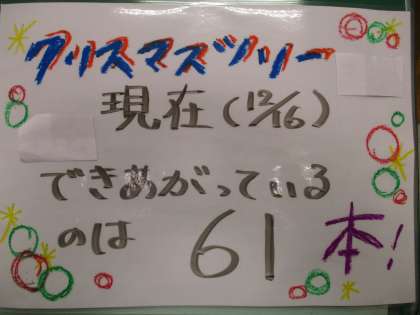 クリスマスツリー
現在(12/16)
できあがっている
のは 61本!